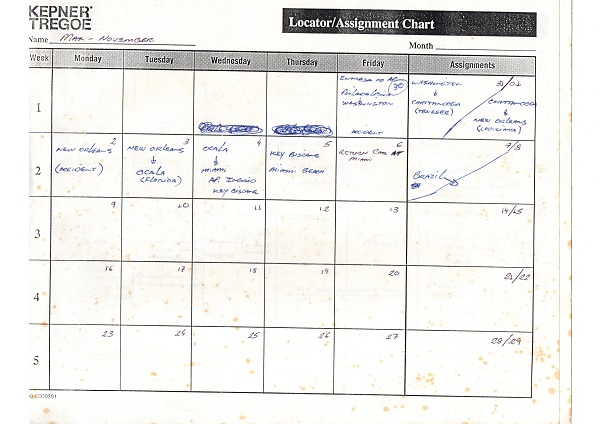 KEPNER
TREGOE
Locator/Assignment Chart
Name May - November
Month
Week Monday Tuesday Wednesday Thursday Friday Assignments
1
30
Philadelphia
Washington
Accident
Washington 31/01
Chattanooga
Chattanooga
New Orleans
(Louisiana)
2
2
New Orleans
(Accident)
3
New Orleans
Ocala
(Florida)
4
Ocala
Miami
Key Biscane
5
Key Biscane
Miami Beach
6
Return Car at
Miami
7/8
Brazil
3
9 10 11 12 13 14/15
4
16 17 18 19 20 21/22
5
23 24 25 26 27 28/29